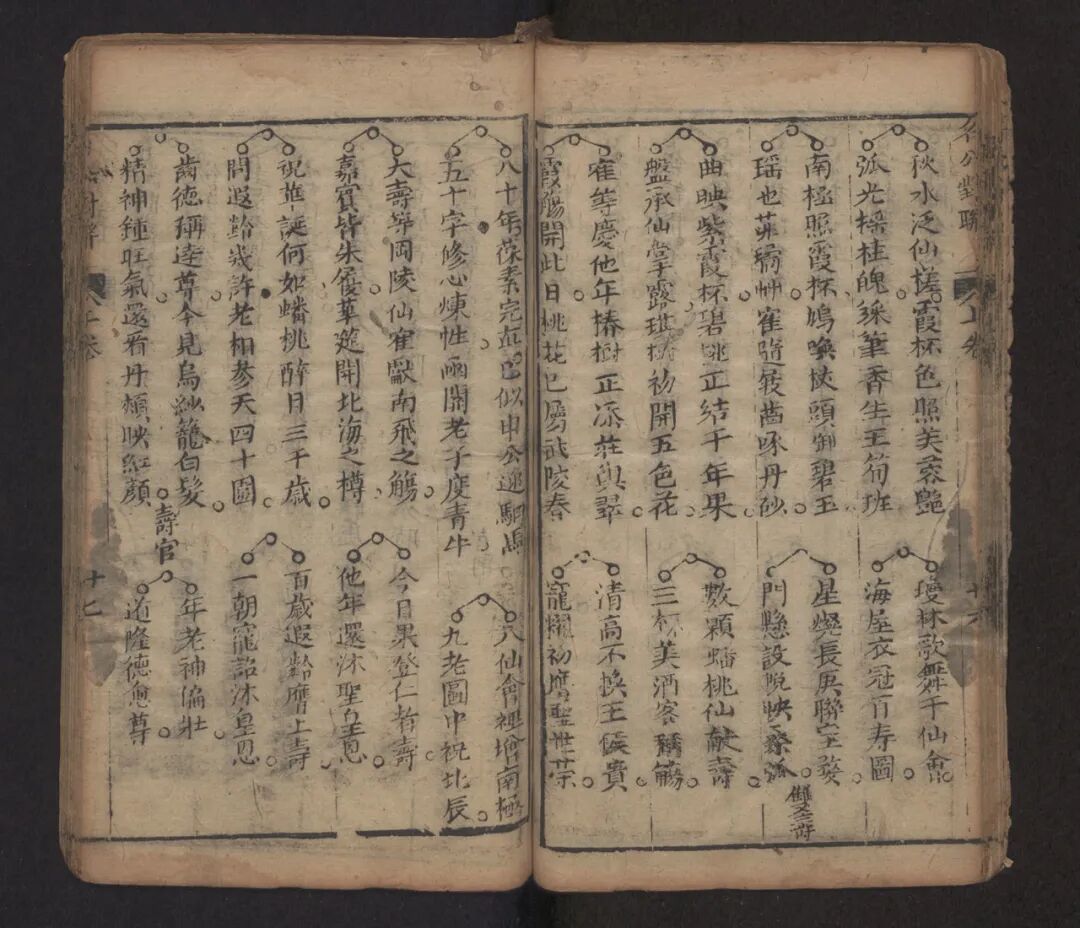 對聯
上卷
十六
秋水泛仙槎霞杯色照芙蓉艷
弧光搖桂魄綵筆香生玉筍班
南極照霞杯鳩喚杖頭御碧玉
瑤池 艸隺隨 啄丹砂
曲映紫霞杯碧桃正結千年果
盤承仙掌露琪樹初開五色花
隺筭慶他年椿樹正添莊與翠
霞觴開此日桃花已屬武陵春
瓊林歌舞千仙會
海屋衣冠百寿圖
星 長庚聯宝婺
門懸設帨映桑弧
雙寿
數顆蟠桃仙献壽
三杯美酒客稱觴
清高不換王侯貴
寵耀初膺聖世榮
八十年葆素完真已似申公迎駟馬
五十字修心煉性函關老子度青牛
大壽等岡陵仙隺獻南飛之觴
嘉賓皆朱履華筵開北海之樽
祝華誕何如蟠桃醉日三千歲
問遐齡幾許老柏參天四十圍
齒德稱達尊今見烏紗籠白髮
精神鍾旺氣還看丹頰映紅顏
八仙會裡增南極
九老圖中祝北辰
今日果登仁者壽
他年還沐聖皇恩
百歲遐齡膺上壽
一朝寵詔沐皇恩
壽官
年老神偏壯
道隆德愈尊
上卷
十七